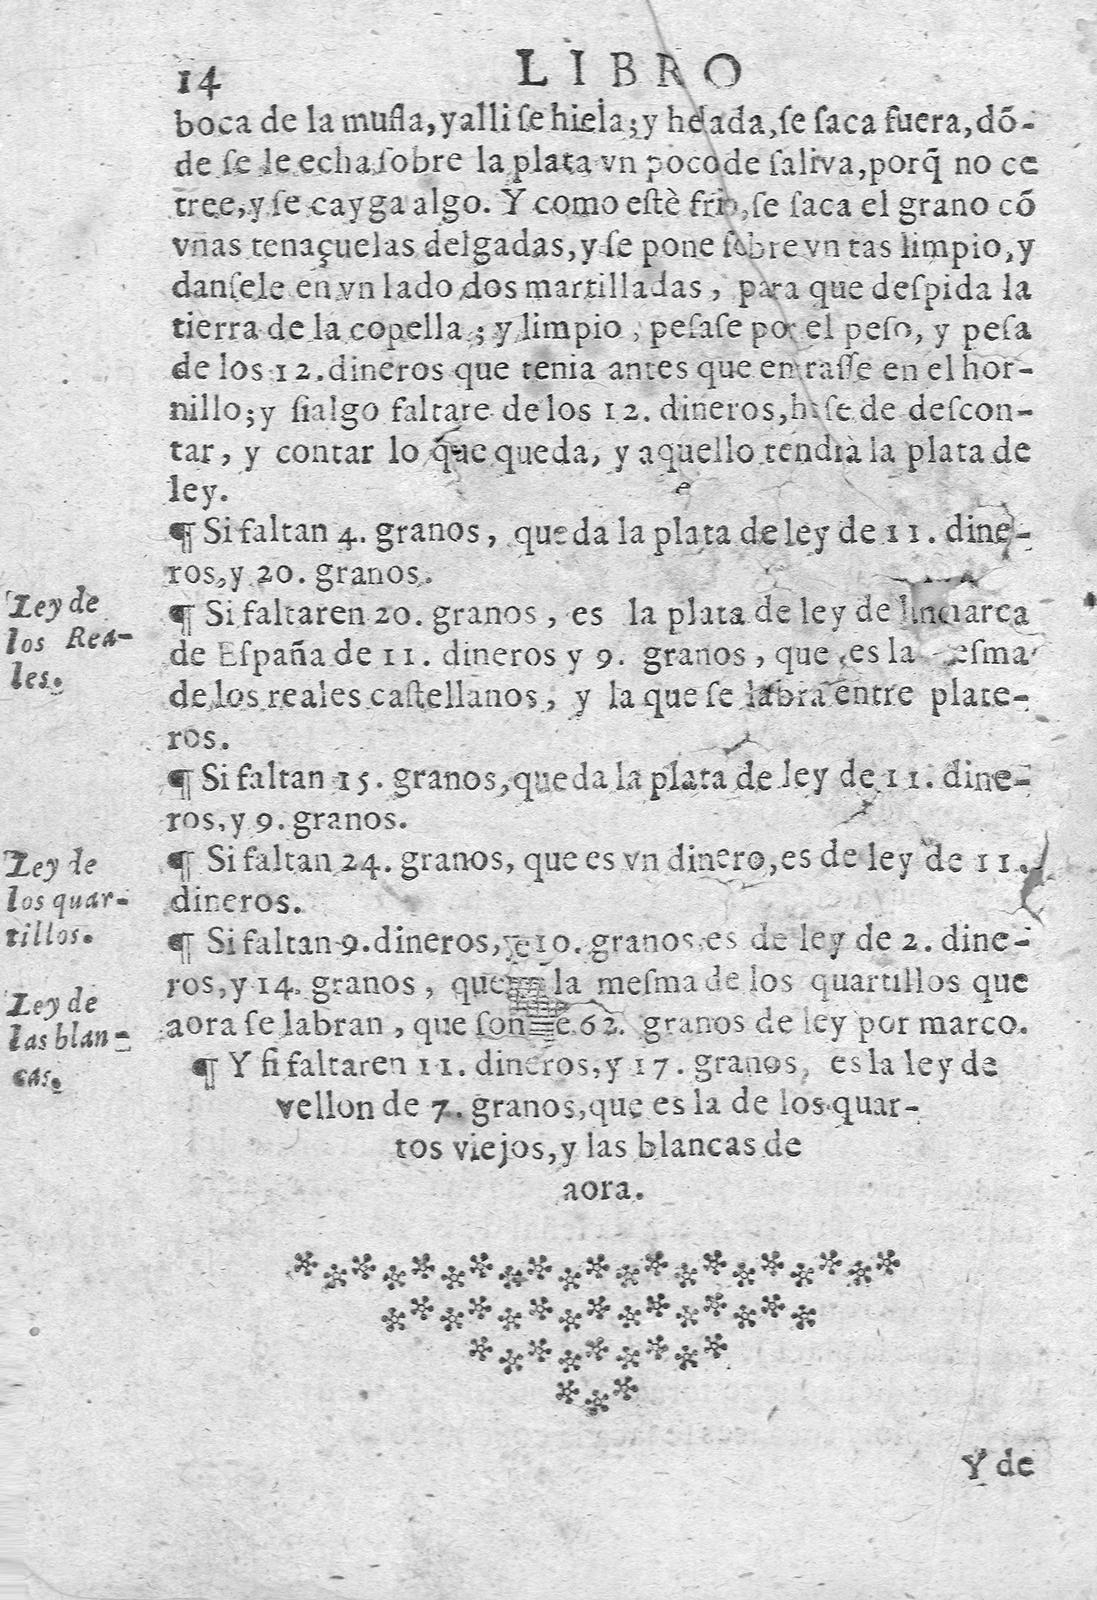 14 LIBRO
boca de la mufla, y alli ſe hiela; y helada, ſe ſaca fuera, dõ-
de ſe le echa ſobre la plata vn poco de ſaliva, porq̃ no ce
tree, y ſe cayga algo. Y como eſtè frio, ſe ſaca el grano cõ
vnas tenaçuelas delgadas, y ſe pone ſobre vn tas limpio, y
danſele en vn lado dos martilladas, para que deſpida la
tierra de la copella; y limpio, peſaſe por el peſo, y peſa
de los 12. dineros que tenia antes que entraſſe en el hor-
nillo; y ſi algo faltare de los 12. dineros, haſe de deſcon-
tar, y contar lo que queda, y aquello tendrà la plata de
ley.
¶ Si faltan 4. granos, queda la plata de ley de 11. dine-
ros, y 20. granos.
Ley de
los Rea-
les.
¶ Si faltaren 20. granos, es la plata de ley de
de Eſpaña de 11. dineros y 9. granos, que es la eſma
de los reales caſtellanos, y la que ſe labra entre plate-
ros.
¶ Si faltan 15. granos, queda la plata de ley de 11. dine-
ros, y 9. granos.
Ley de
los quar-
tillos.
¶ Si faltan 24. granos, que es vn dinero, es de ley de 11.
dineros.
¶ Si faltan 9. dineros, y 10. granos, es de ley de 2. dine-
ros, y 14. granos, que la meſma de los quartillos que
aora ſe labran, que ſon e 62. granos de ley por marco.
Ley de
las blan-
cas.
¶ Y ſi faltaren 11. dineros, y 17. granos, es la ley de
vellon de 7. granos, que es la de los quar-
tos viejos, y las blancas de
aora.
Y de